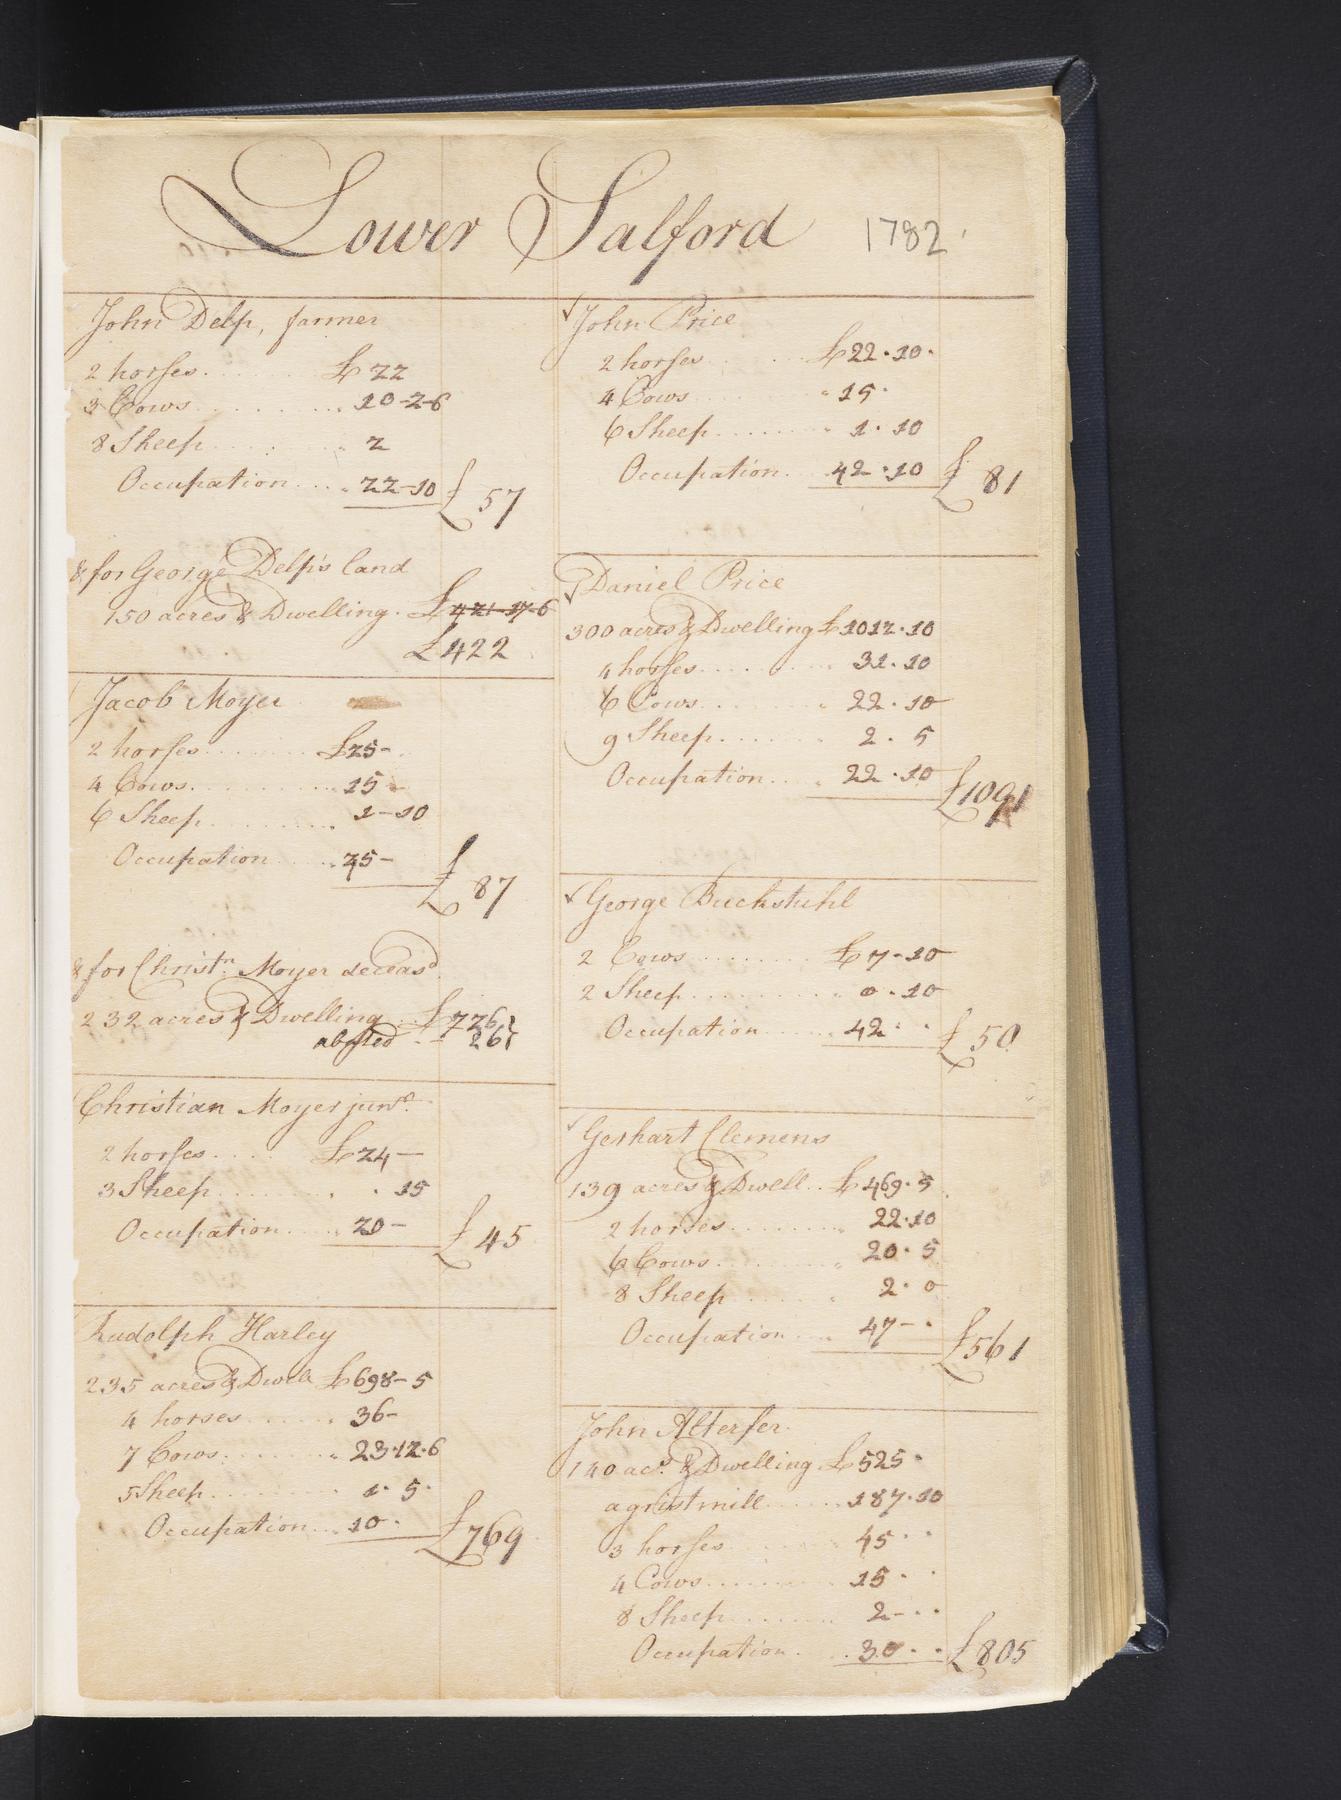 Lower Salford 1782
John Delp, farmer
2 horses £22
3 Cows 10-2-6
8 Sheep 2
Occupation 22-10 £57
& for George Delp's land
150 acres & Dwelling. £421-17-6
£422
Jacob Moyer
2 horses £25-
4 Cows 15-
6 Sheep 1-10
Occupation 45- £87
& for Christn. Moyer deceasd
232 acres & Dwelling £726
abated 26
Christian Moyer junr.
2 horses £24-
3 Sheep 15
Occupation 20- £45
Rudolph Harley
235 acres & Dwell £698-5
4 horses 36-
7 Cows 23.12.6
5 Sheep 1.5.
Occupation 10. £769
John Price
2 horses £22.10.
4 Cows 15.
6 Sheep 1.10
Occupation 42.10 £81
Daniel Price
300 acres & Dwelling £1012.10
4 horses 31.10
6 Cows 22.10
9 Sheep 2.5
Occupation 22.10 £1091
George Buckstuhl
2 Cows £7-10
2 Sheep 0.10
Occupation 42.. £50
Gerhart Clemens
139 acres & Dwell £469.5
2 horses 22.10
6 Cows 20.5
8 Sheep 2.0
Occupation 47-. £561
John Alterfer
140 acs. & Dwelling £525.
a gristmill 187.10
3 horses 45..
4 Cows 15..
8 Sheep 2-..
Occupation 30.. £805